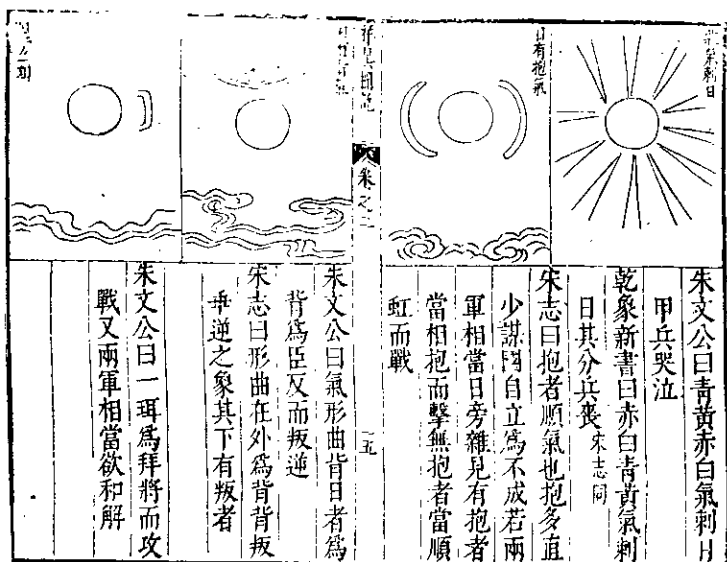 氣刺日
朱文公曰青黃赤白氣刺日
甲兵哭泣
乾象新書曰赤白青黃氣刺
日其分兵喪宋志同
日有抱氣
宋志曰抱者順氣也抱多直
少謀自立爲不成若兩
軍相當日旁雜見有抱者
當相抱而擊無抱者當順
虹而戰
祥異圖說
卷之
十五
朱文公曰氣形曲背日者爲
背爲臣反而叛逆
宋志曰形曲在外爲背背叛
乖逆之象其下有叛者
朱文公曰一珥爲拜將而攻
戰又兩軍相當欲和解